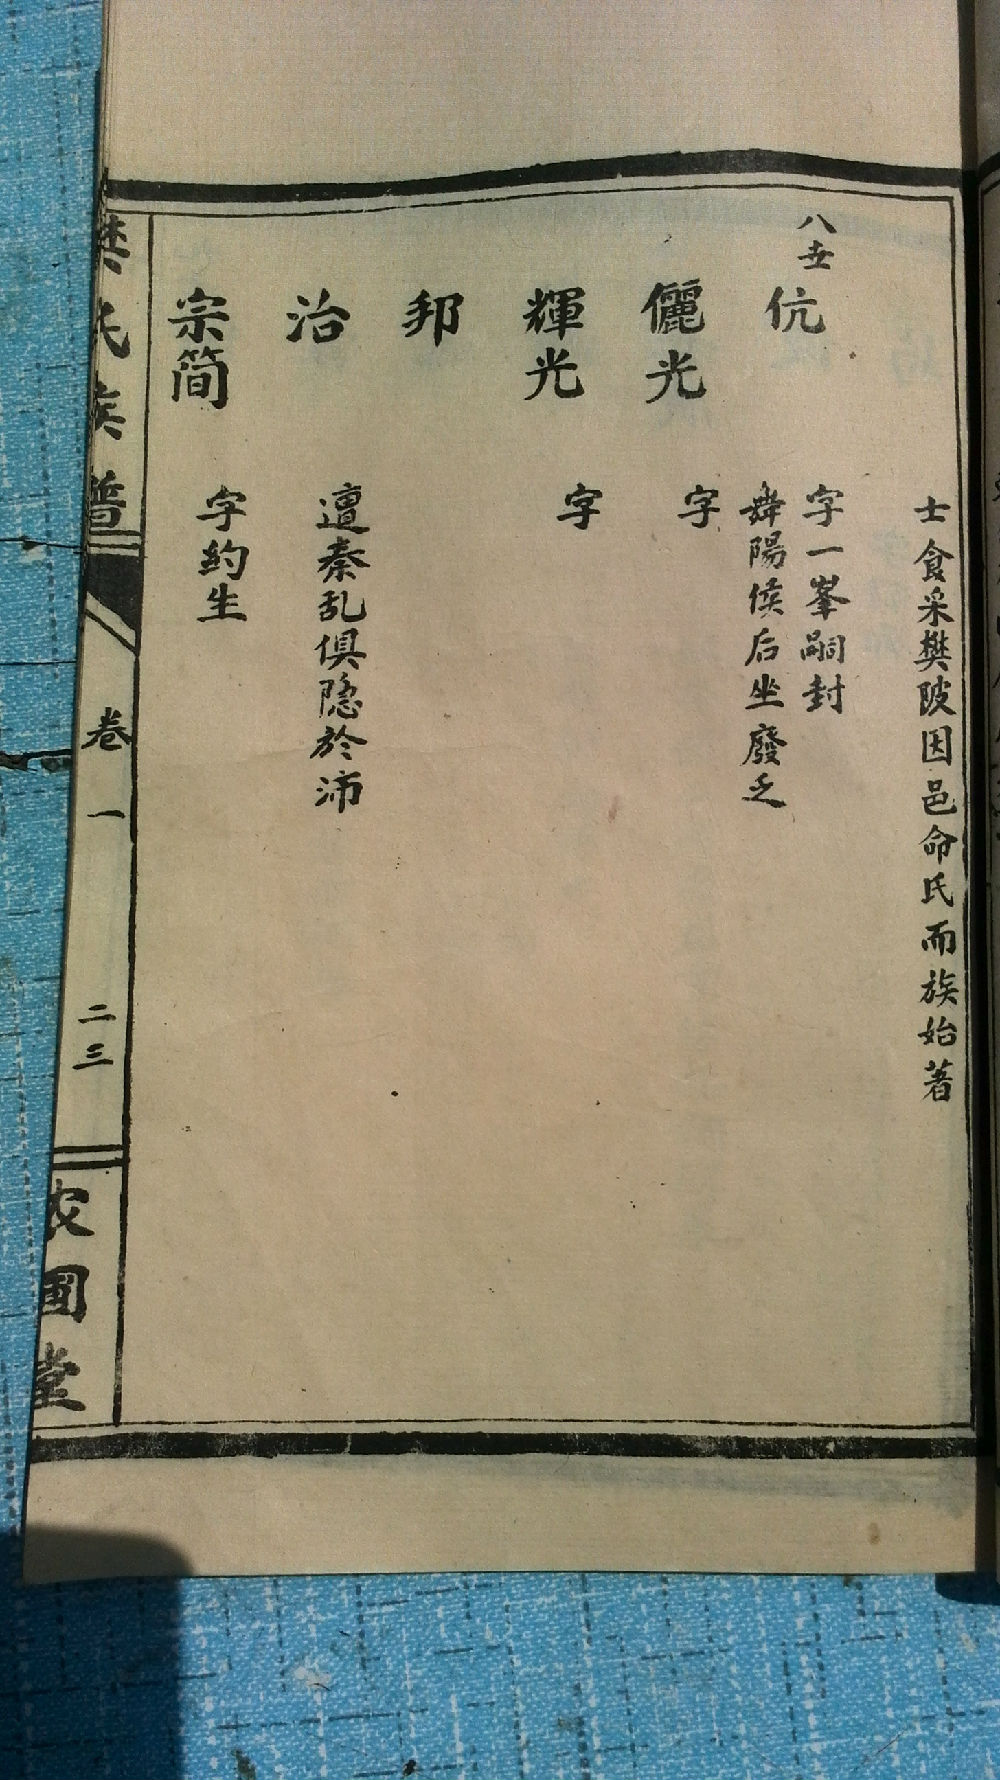 士食采樊陂因邑命氏而族始著
八世
伉
字一峯嗣封
舞陽侯后坐廢乏
儷光
字
輝光
字
邦
治
邅秦乱俱隐於沛
宗简
字約生
樊氏族譜
卷一
二三
農國堂